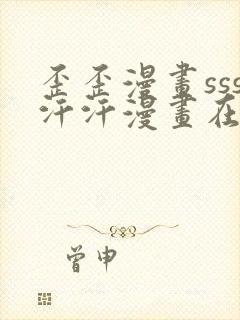 歪歪漫畫sss
汗汗漫畫在
曾申